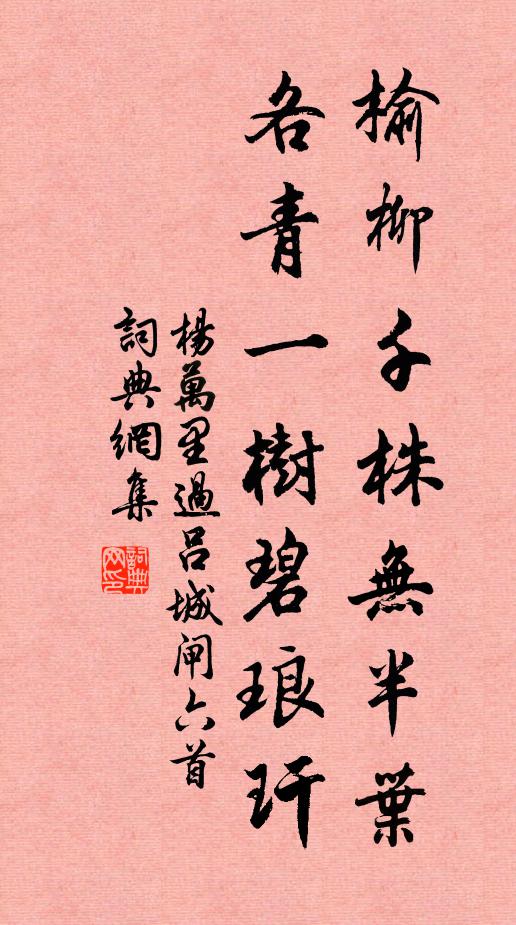 榆柳千株無半葉
各青一樹碧琅玕
楊萬里過呂城闸六首
詞典網集
詞典网印